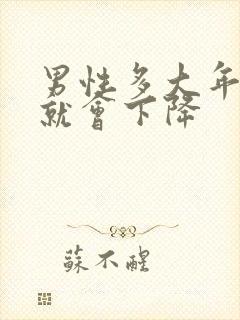 男性多大年
就會下降
蘇不醒